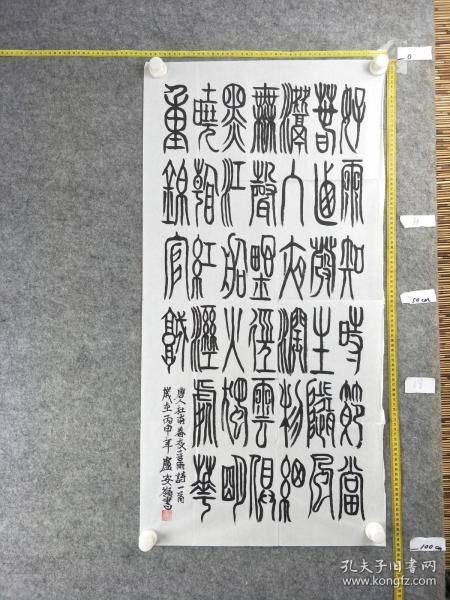 好雨知時節當
春迺發生隨風
潛入夜潤物細
無聲野徑雲俱
黑江船火獨明
曉看紅溼處華
重錦官城
唐人杜甫春夜喜雨詩一首
歲在丙申年盧安書
0
50cm
100cm
孔夫子旧书网
www.kongfz.com